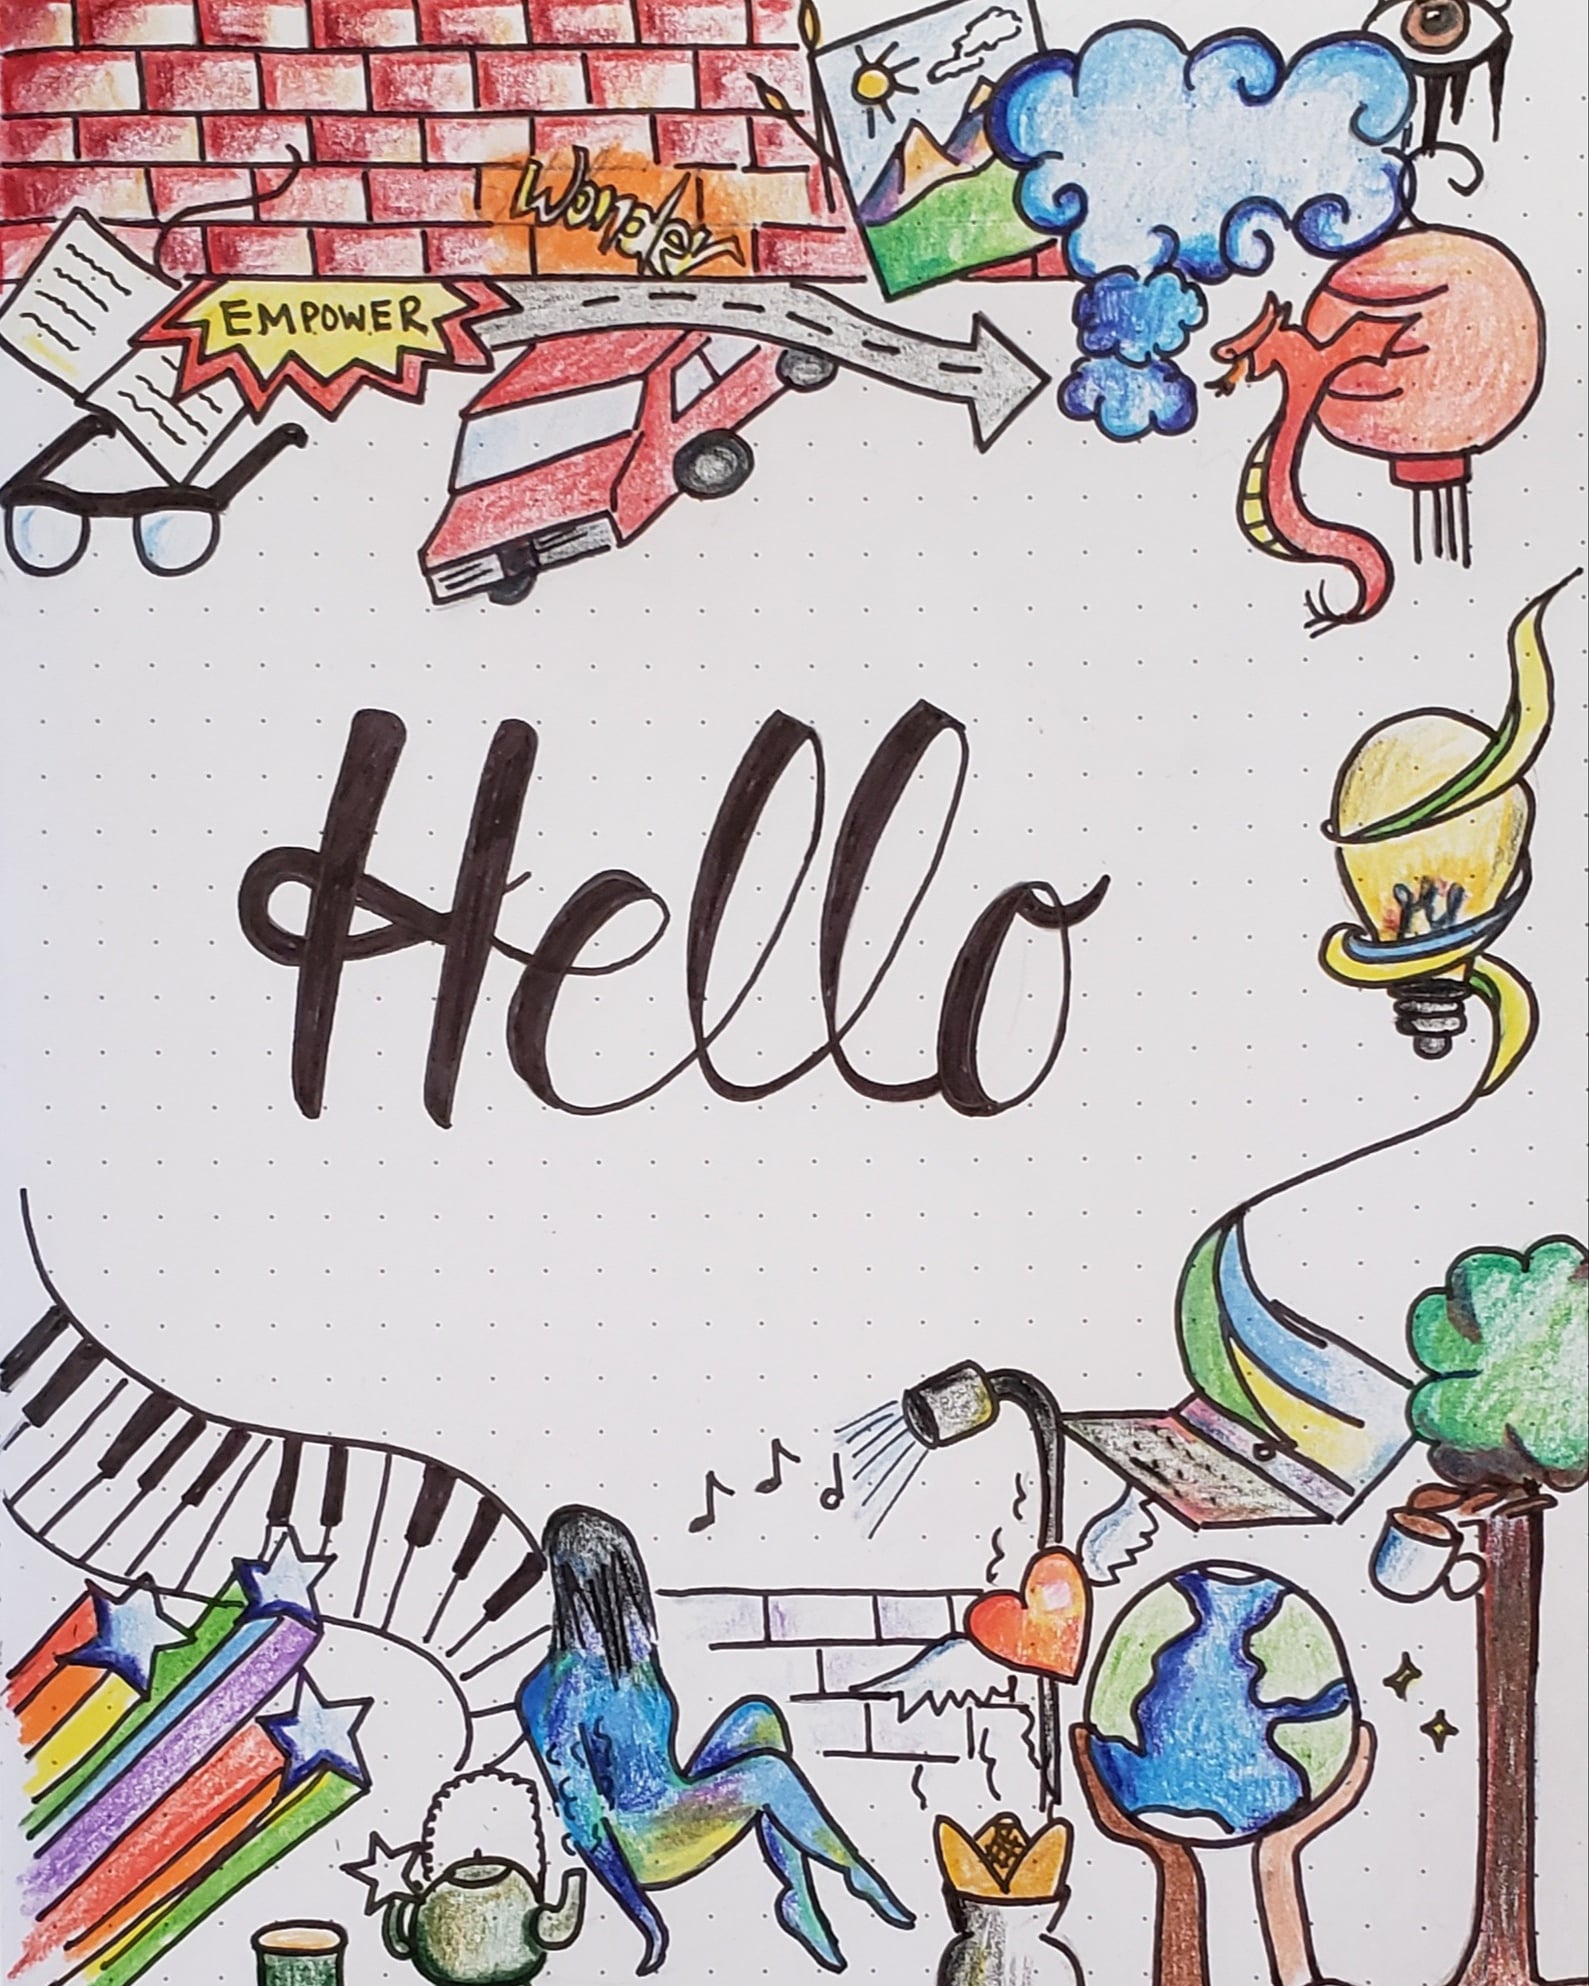 Wonder
EMPOWER
Hello